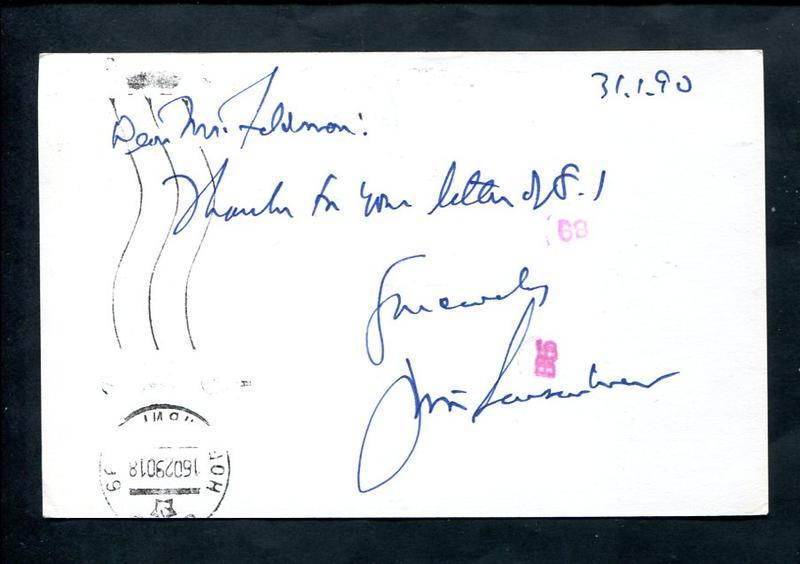 31.1.90
Dear Mr. Feldman:
Thanks for your letter of 8.1
68
Sincerely
BS
16029018